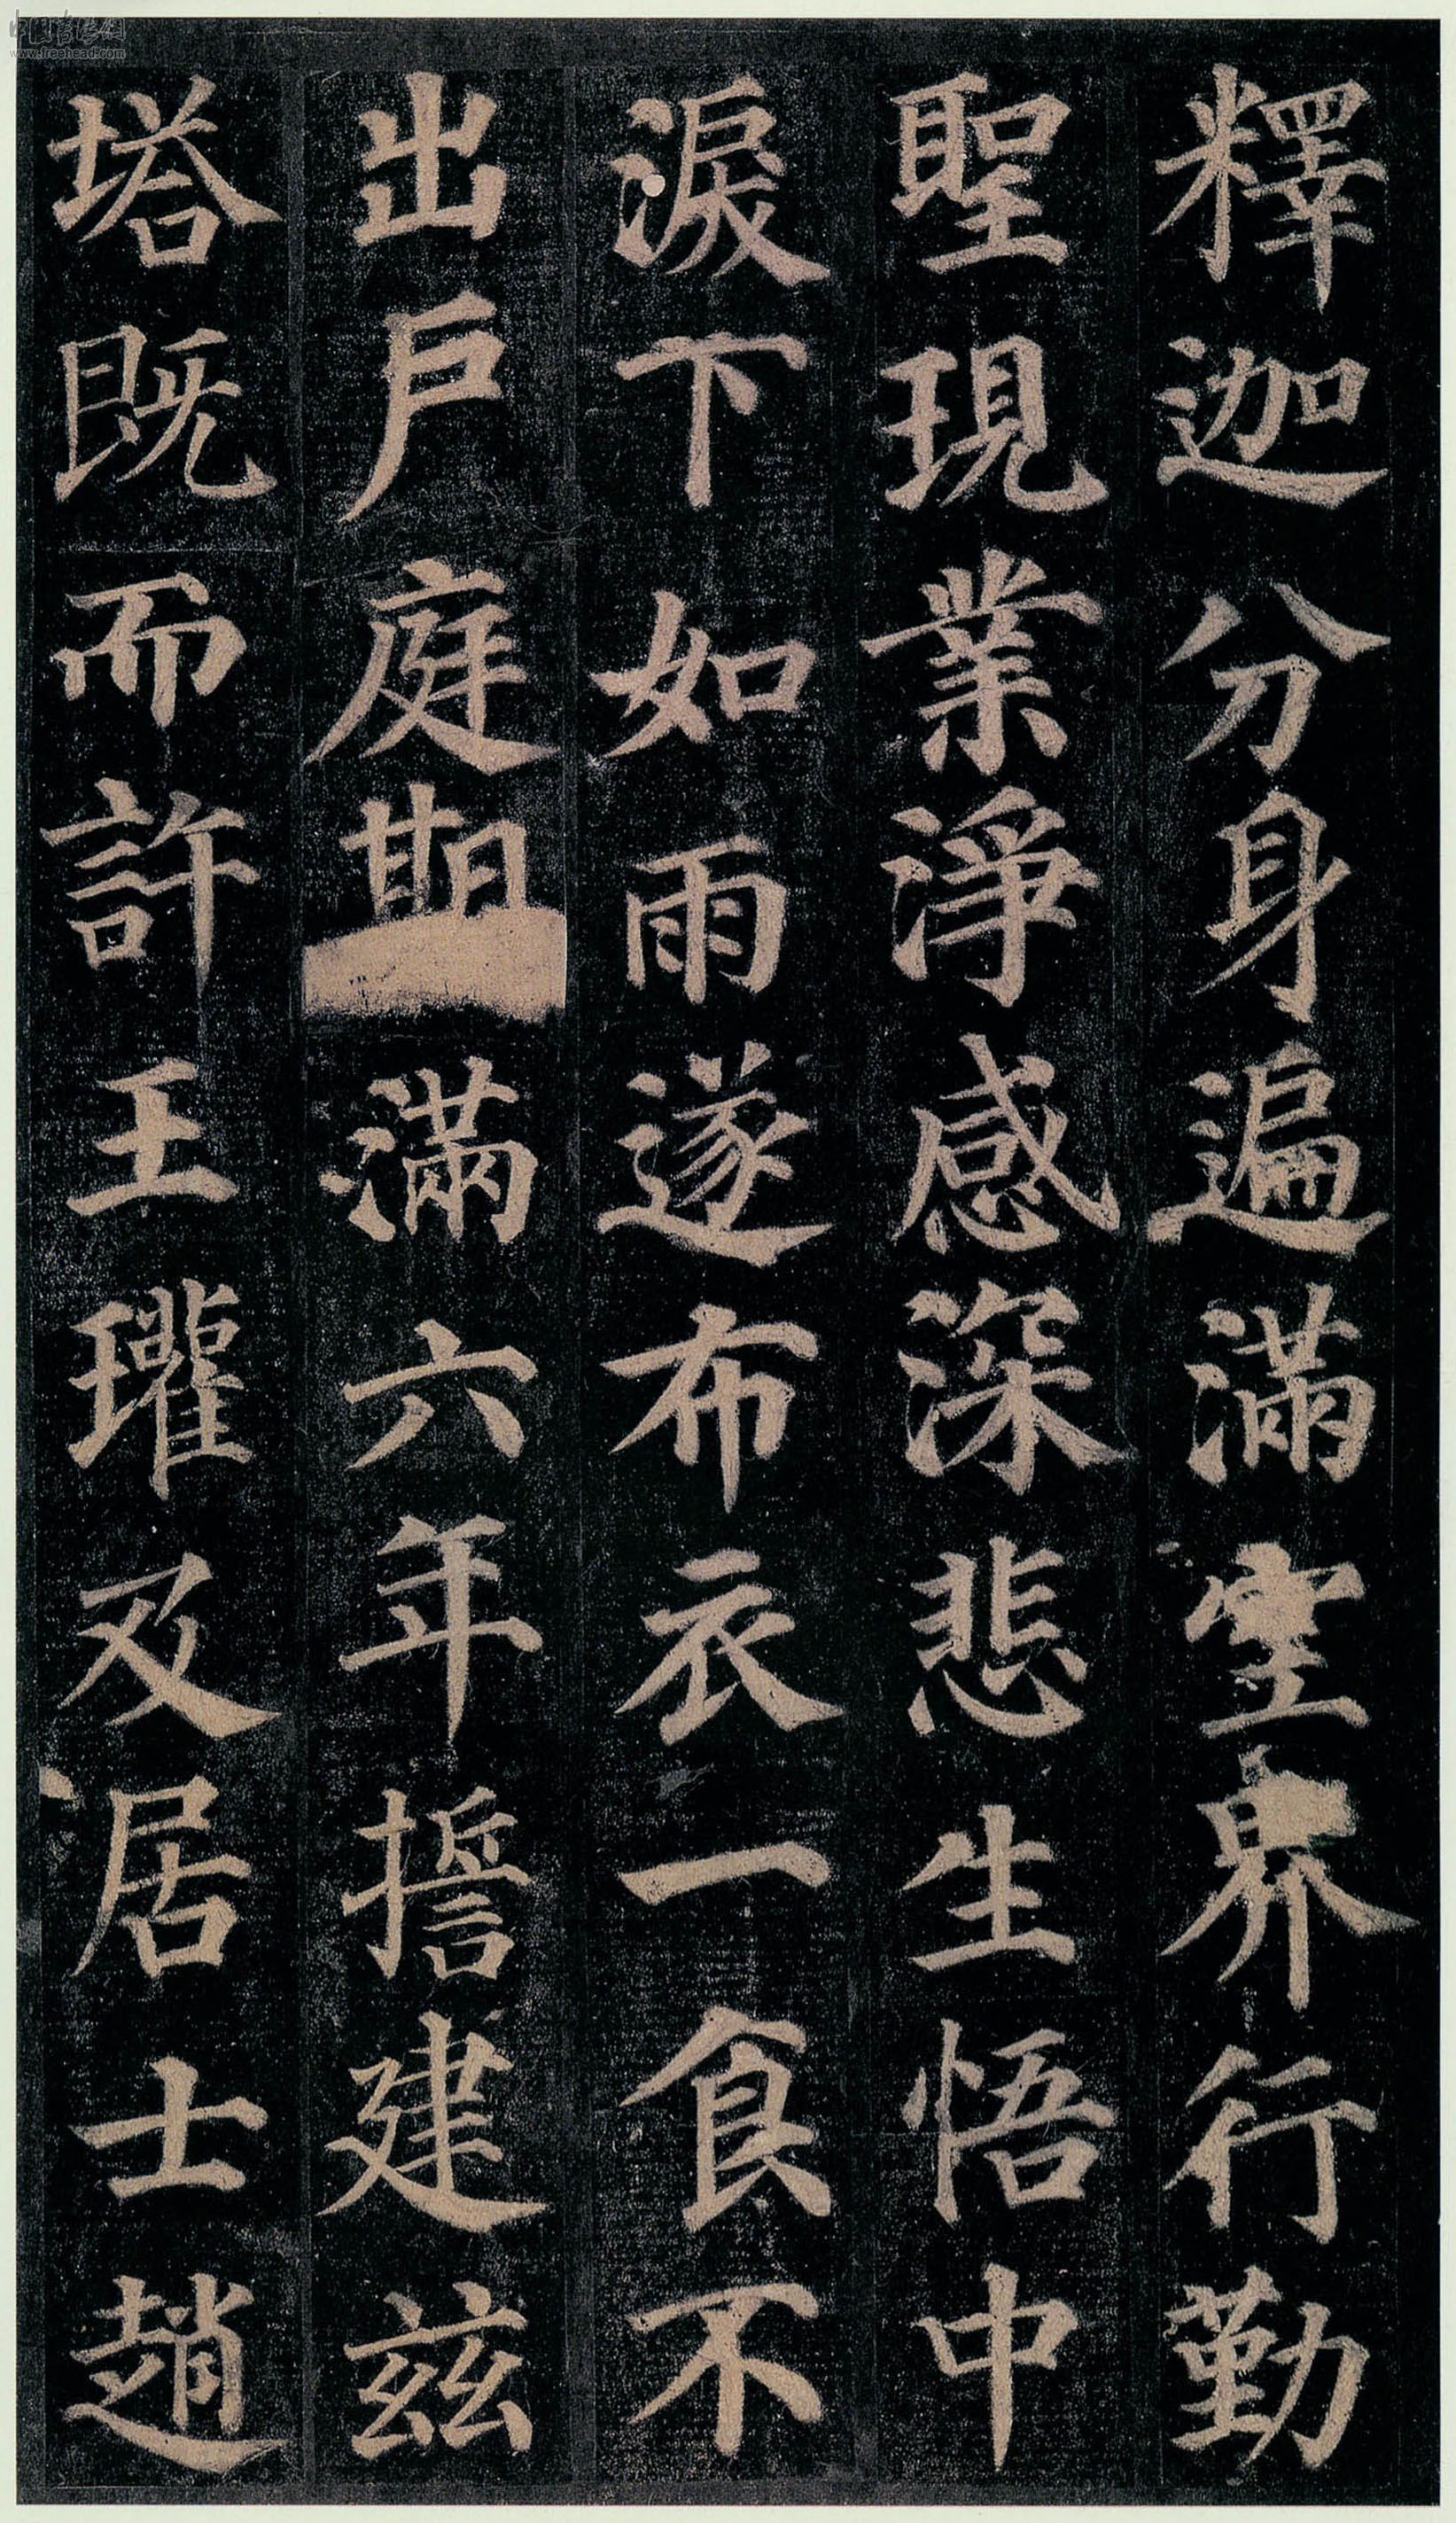 釋迦分身遍滿空界行勤
聖現業淨感深悲生悟中
淚下如雨遂布衣一食不
出戶庭期滿六年誓建茲
塔既而許王瓘及居士趙
www.freehead.com